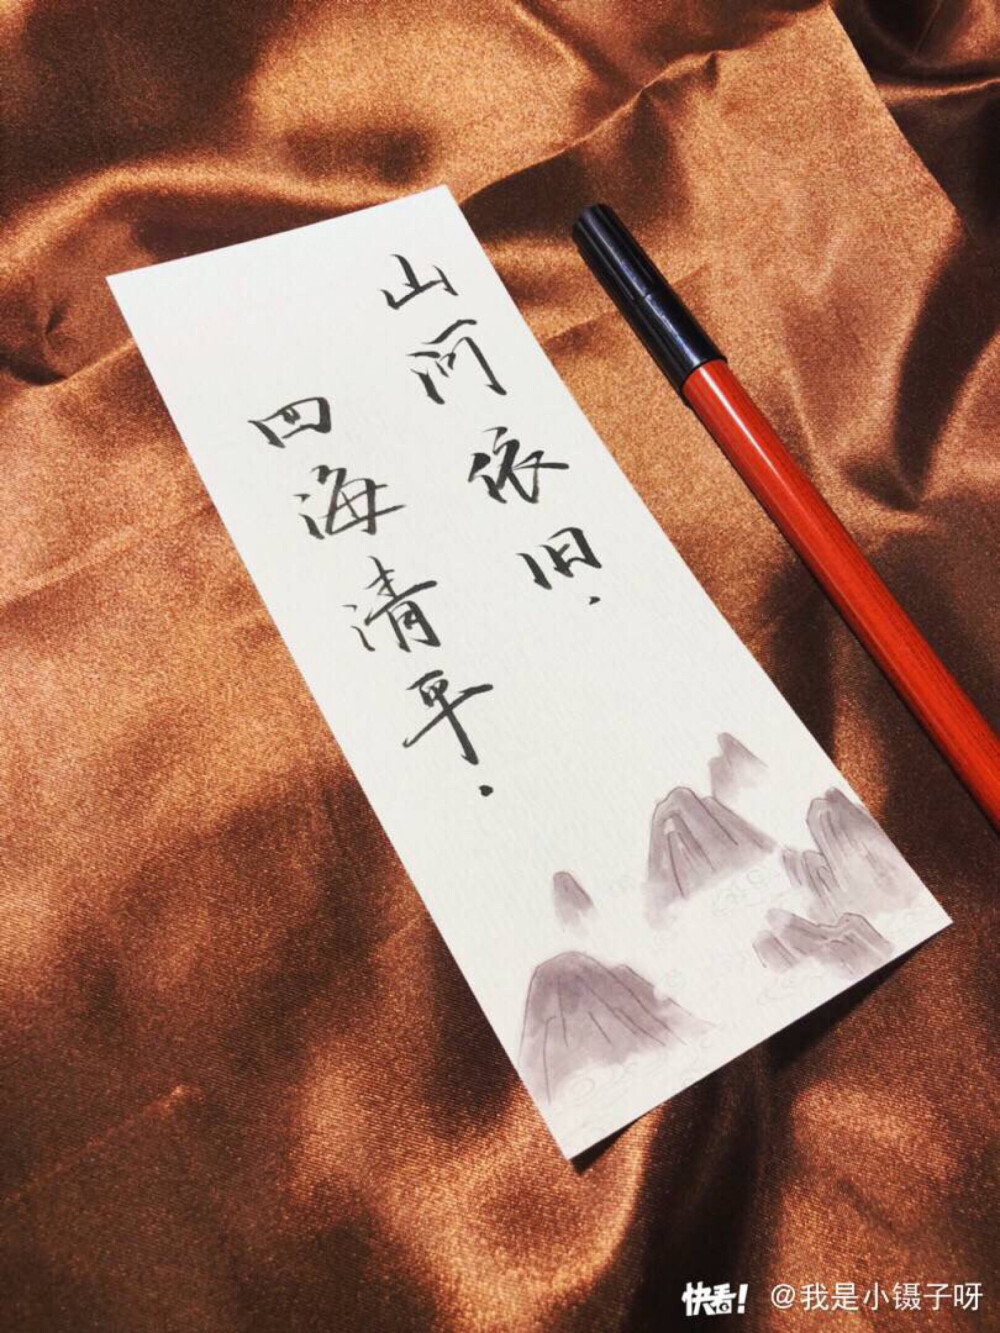 山河依旧.
四海清平.
快看!
@我是小镊子呀